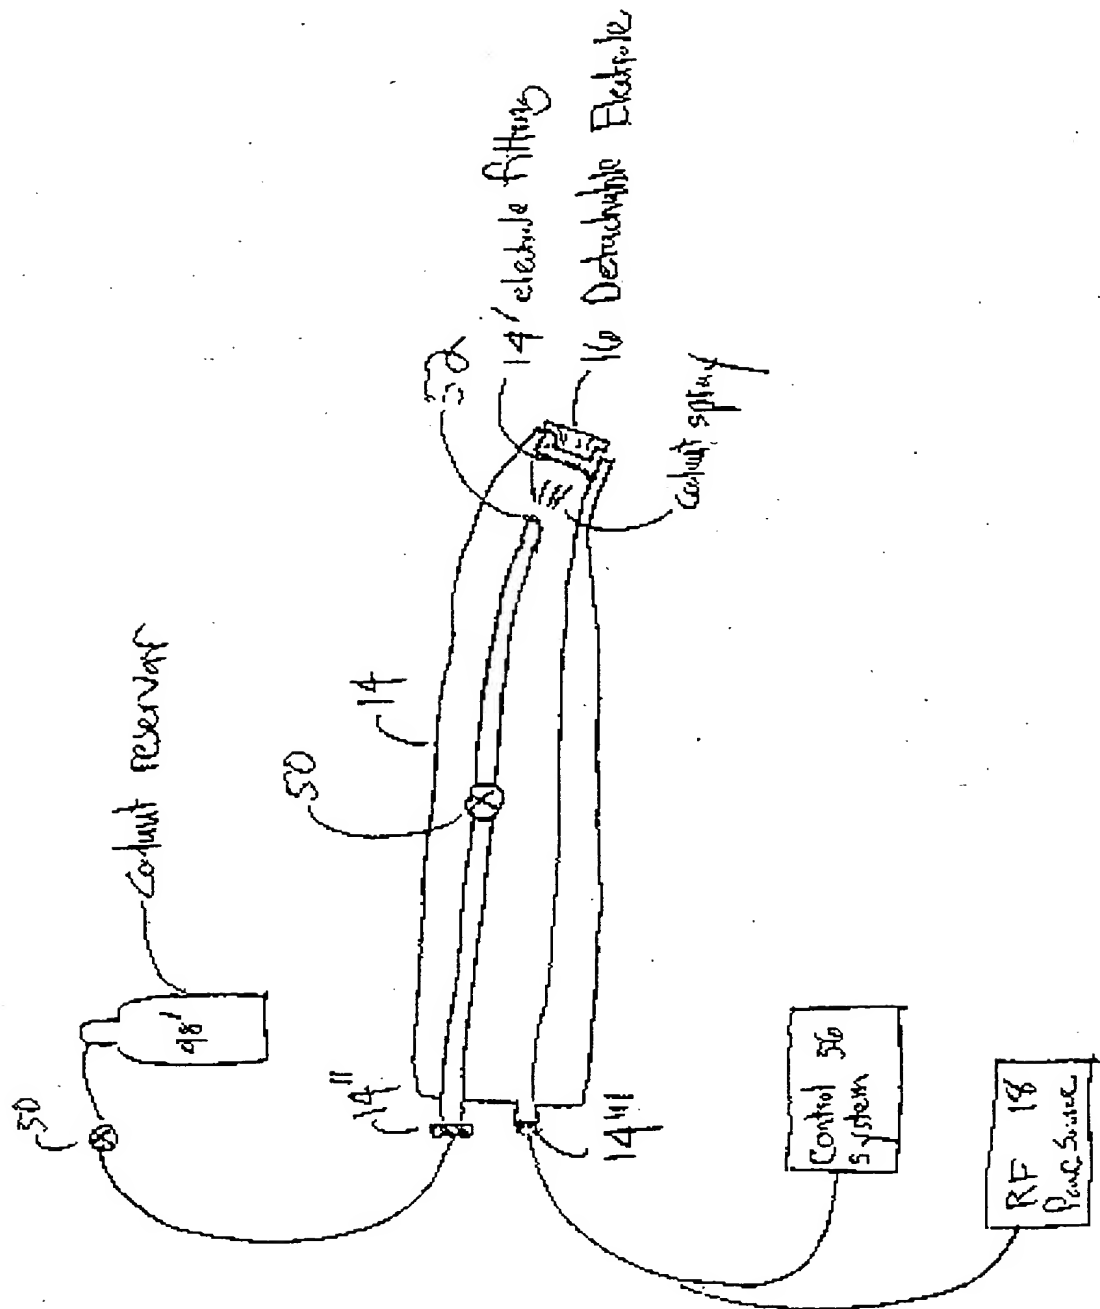 50
Coolant reservoir
48'
50
14
52
14' electrode fitting
16 Detachable Electrode
Coolant spray
14"
14'''
Control 56
system
RF 18
Power Source